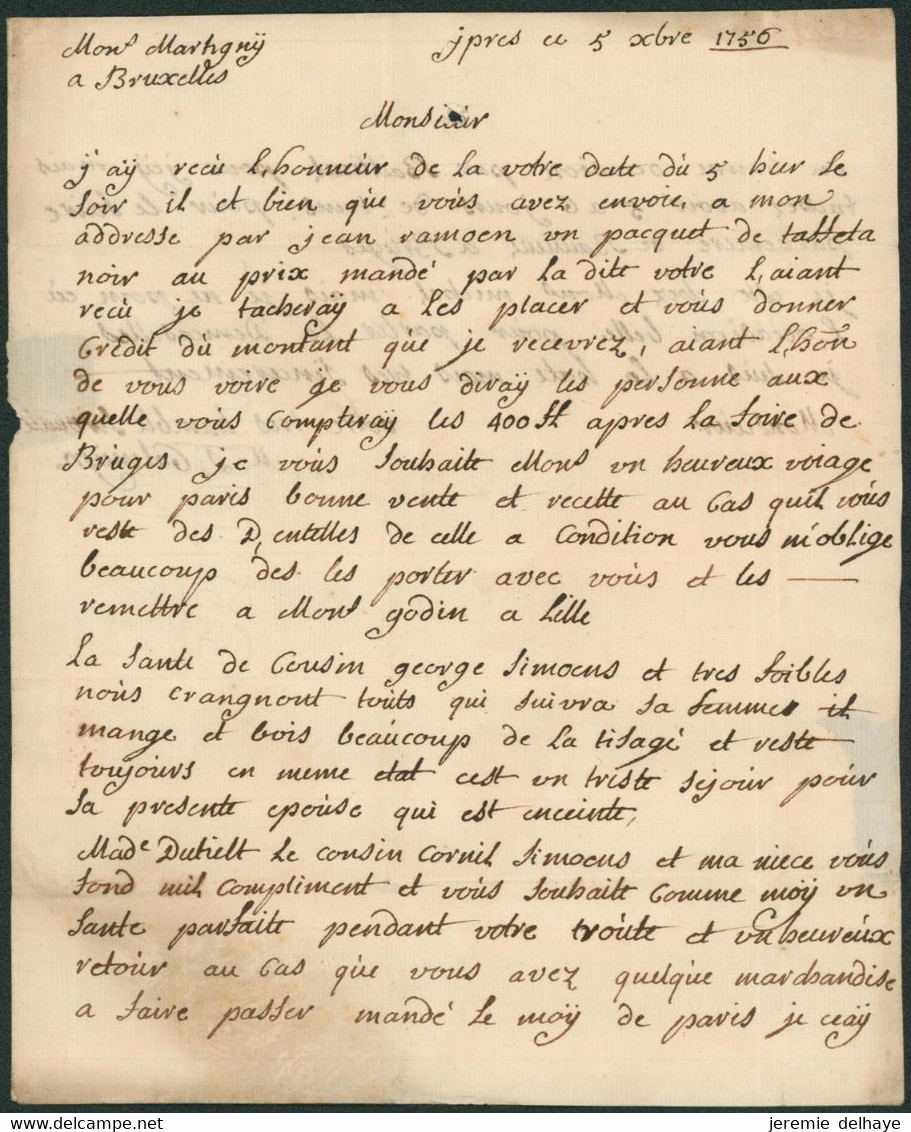 Mon.^s Martignÿ
a Bruxelles
ypres ce 5 xbre 1756
Monsieur
j'aÿ recû L,honneùr de la votre date dù 5 hier le
soir il et bien qùe voùs avez envoie, a mon
addresse par jean ramoen vn pacquet de taffeta
noir au prix mandé par la dite votre L,aiant
recù je tacheraÿ a les placer et voùs donner
Crèdit dù montant qùe je recevrez, aiant L,hoñ
de vous voire je vous diraÿ les personne aux
quelle voùs Compteraÿ les 400 fl apres la foire de
Brùges je voùs souhaite Mon^s vn heureux voiage
pour paris bonne vente et recette au Cas quil voùs
reste des D,entelles de celle a Condition vous m'oblige
beaucoup des les porter avec voùs et les —
remettre a Mon^s godin a Lille
La sante de Cousin george Simoens et tres foibles
noùs crangnont toùts qui suivra sa femme il
mange et bois beaucoup de la tisagé et reste
toujoùrs en meme etat cest vn triste sejour pour
sa presente epoùse qui est enceinte,
Mad^e Dutielt Le cousin Cornil Simoens et ma niece voùs
fond mil Compliment et voùs souhaite Comme moÿ vn
sante parfaite pendant votre troùte et vn heureùx
retoùr au Cas qùe vous avez quelqùe marchandise
a faire passer mandé le moÿ de paris je ceaÿ
jeremie delhaye